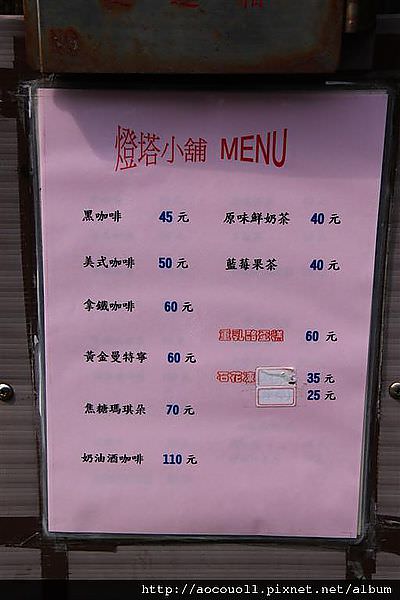 燈塔小舖 MENU
黑咖啡 45 元
美式咖啡 50 元
拿鐵咖啡 60 元
黃金曼特寧 60 元
焦糖瑪琪朵 70 元
奶油酒咖啡 110 元
原味鮮奶茶 40 元
藍莓果茶 40 元
重乳酪蛋糕 60 元
石花凍 35 元
25 元
http://aocouo11.pixnet.net/album